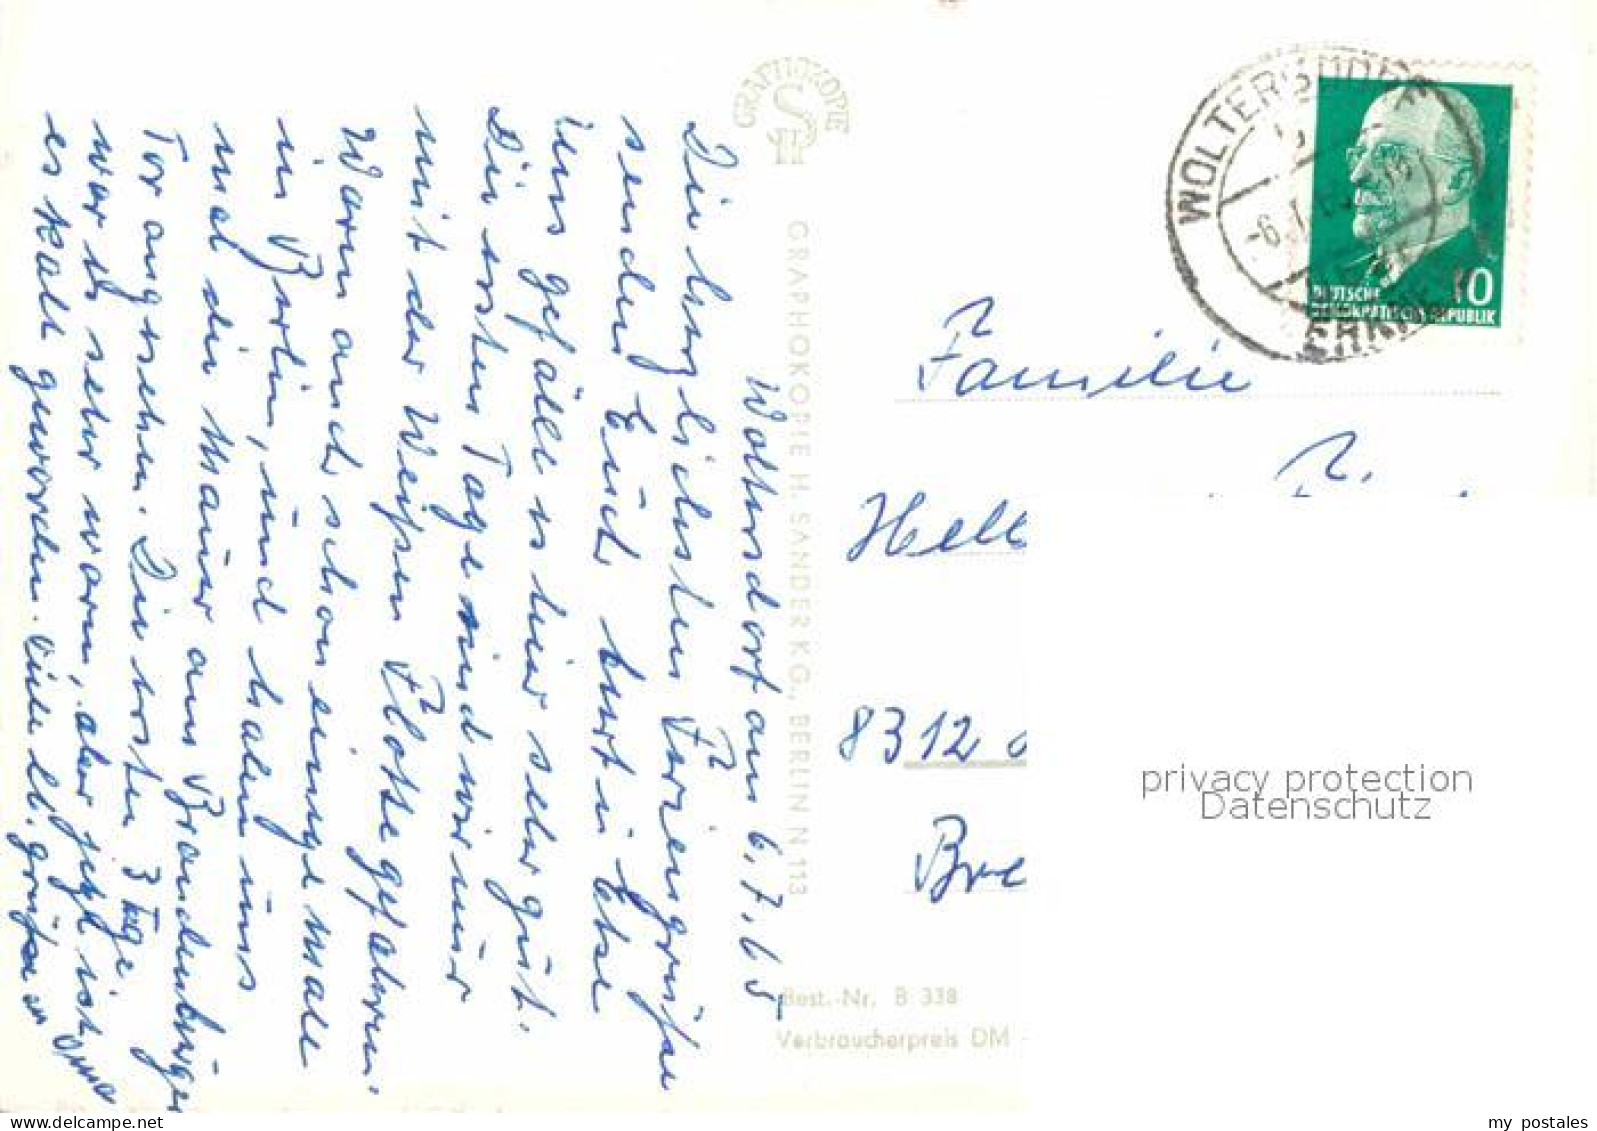 Woltersdorf am 6.7.65
Die herzlichsten Feriengrüße
senden Euch Kurt u. Else
Uns gefällt es hier sehr gut.
Die ersten Tage sind wir nur
mit der Weißen Flotte gefahren.
Waren auch schon einige Male
in Berlin, und haben uns
mal die Mauer am Brandenburger
Tor angesehen. Die ersten 3 Tage
war es sehr warm, aber jetzt ist
es kalt geworden. Viele lb. Grüße
Oma
GRAPHOKOPIE
GRAPHOKOPIE H. SANDER KG., BERLIN N 113
Best.-Nr. B 338
Verbraucherpreis DM
WOLTERSDORF
10
DEUTSCHE
DEMOKRATISCHE REPUBLIK
Familie
8312
privacy protection
Datenschutz
my postales